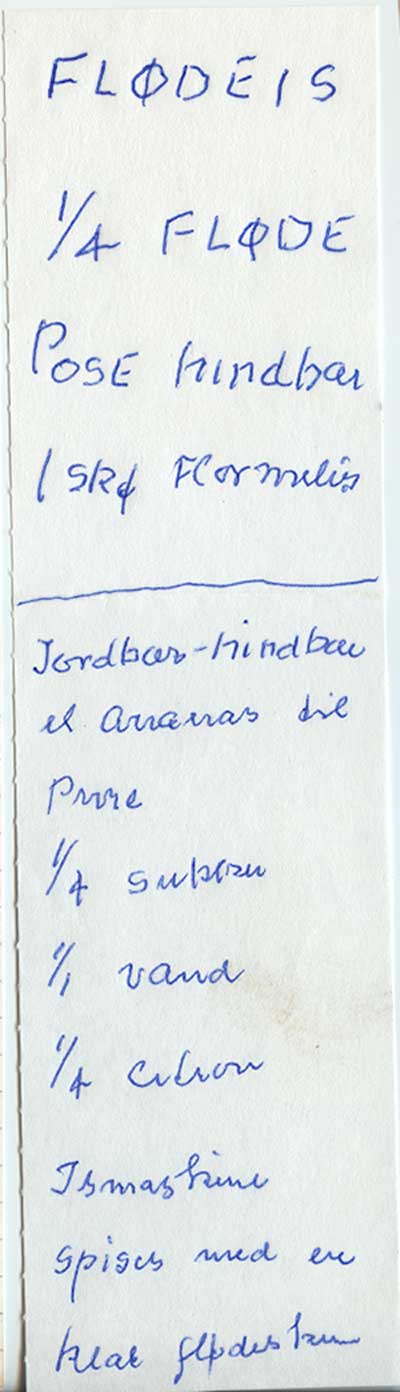 FLØDEIS
1/4 FLØDE
POSE hindbær
1 skf Flormelis
Jordbær-hindbær
el ananas til
Pure
1/4 sukker
1/1 vand
1/4 citron
Ismaskine
spises med en
klat flødeskum